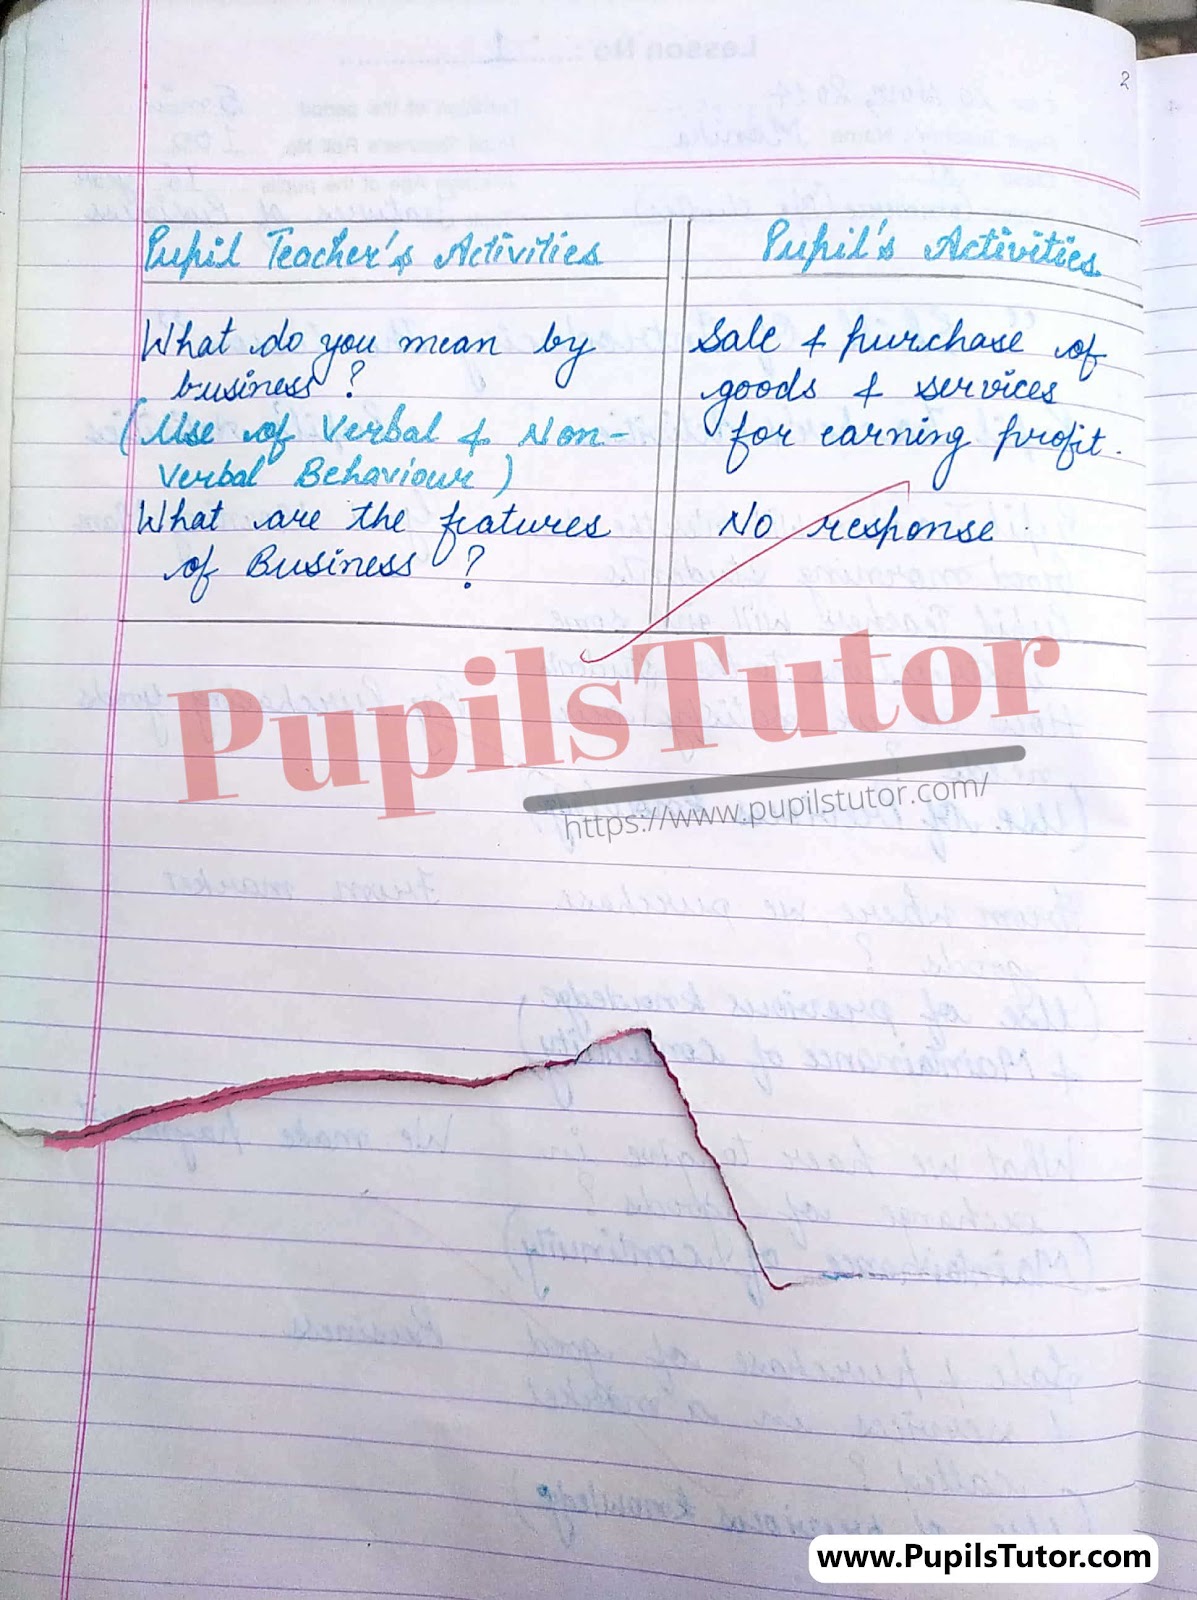 2
Pupil Teacher's Activities
Pupil's Activities
What do you mean by
business ?
(Use of Verbal & Non-
Verbal Behaviour)
What are the features
of Business ?
Sale & purchase of
goods & services
for earning profit.
No response.
PupilsTutor
https://www.pupilstutor.com/
www.PupilsTutor.com